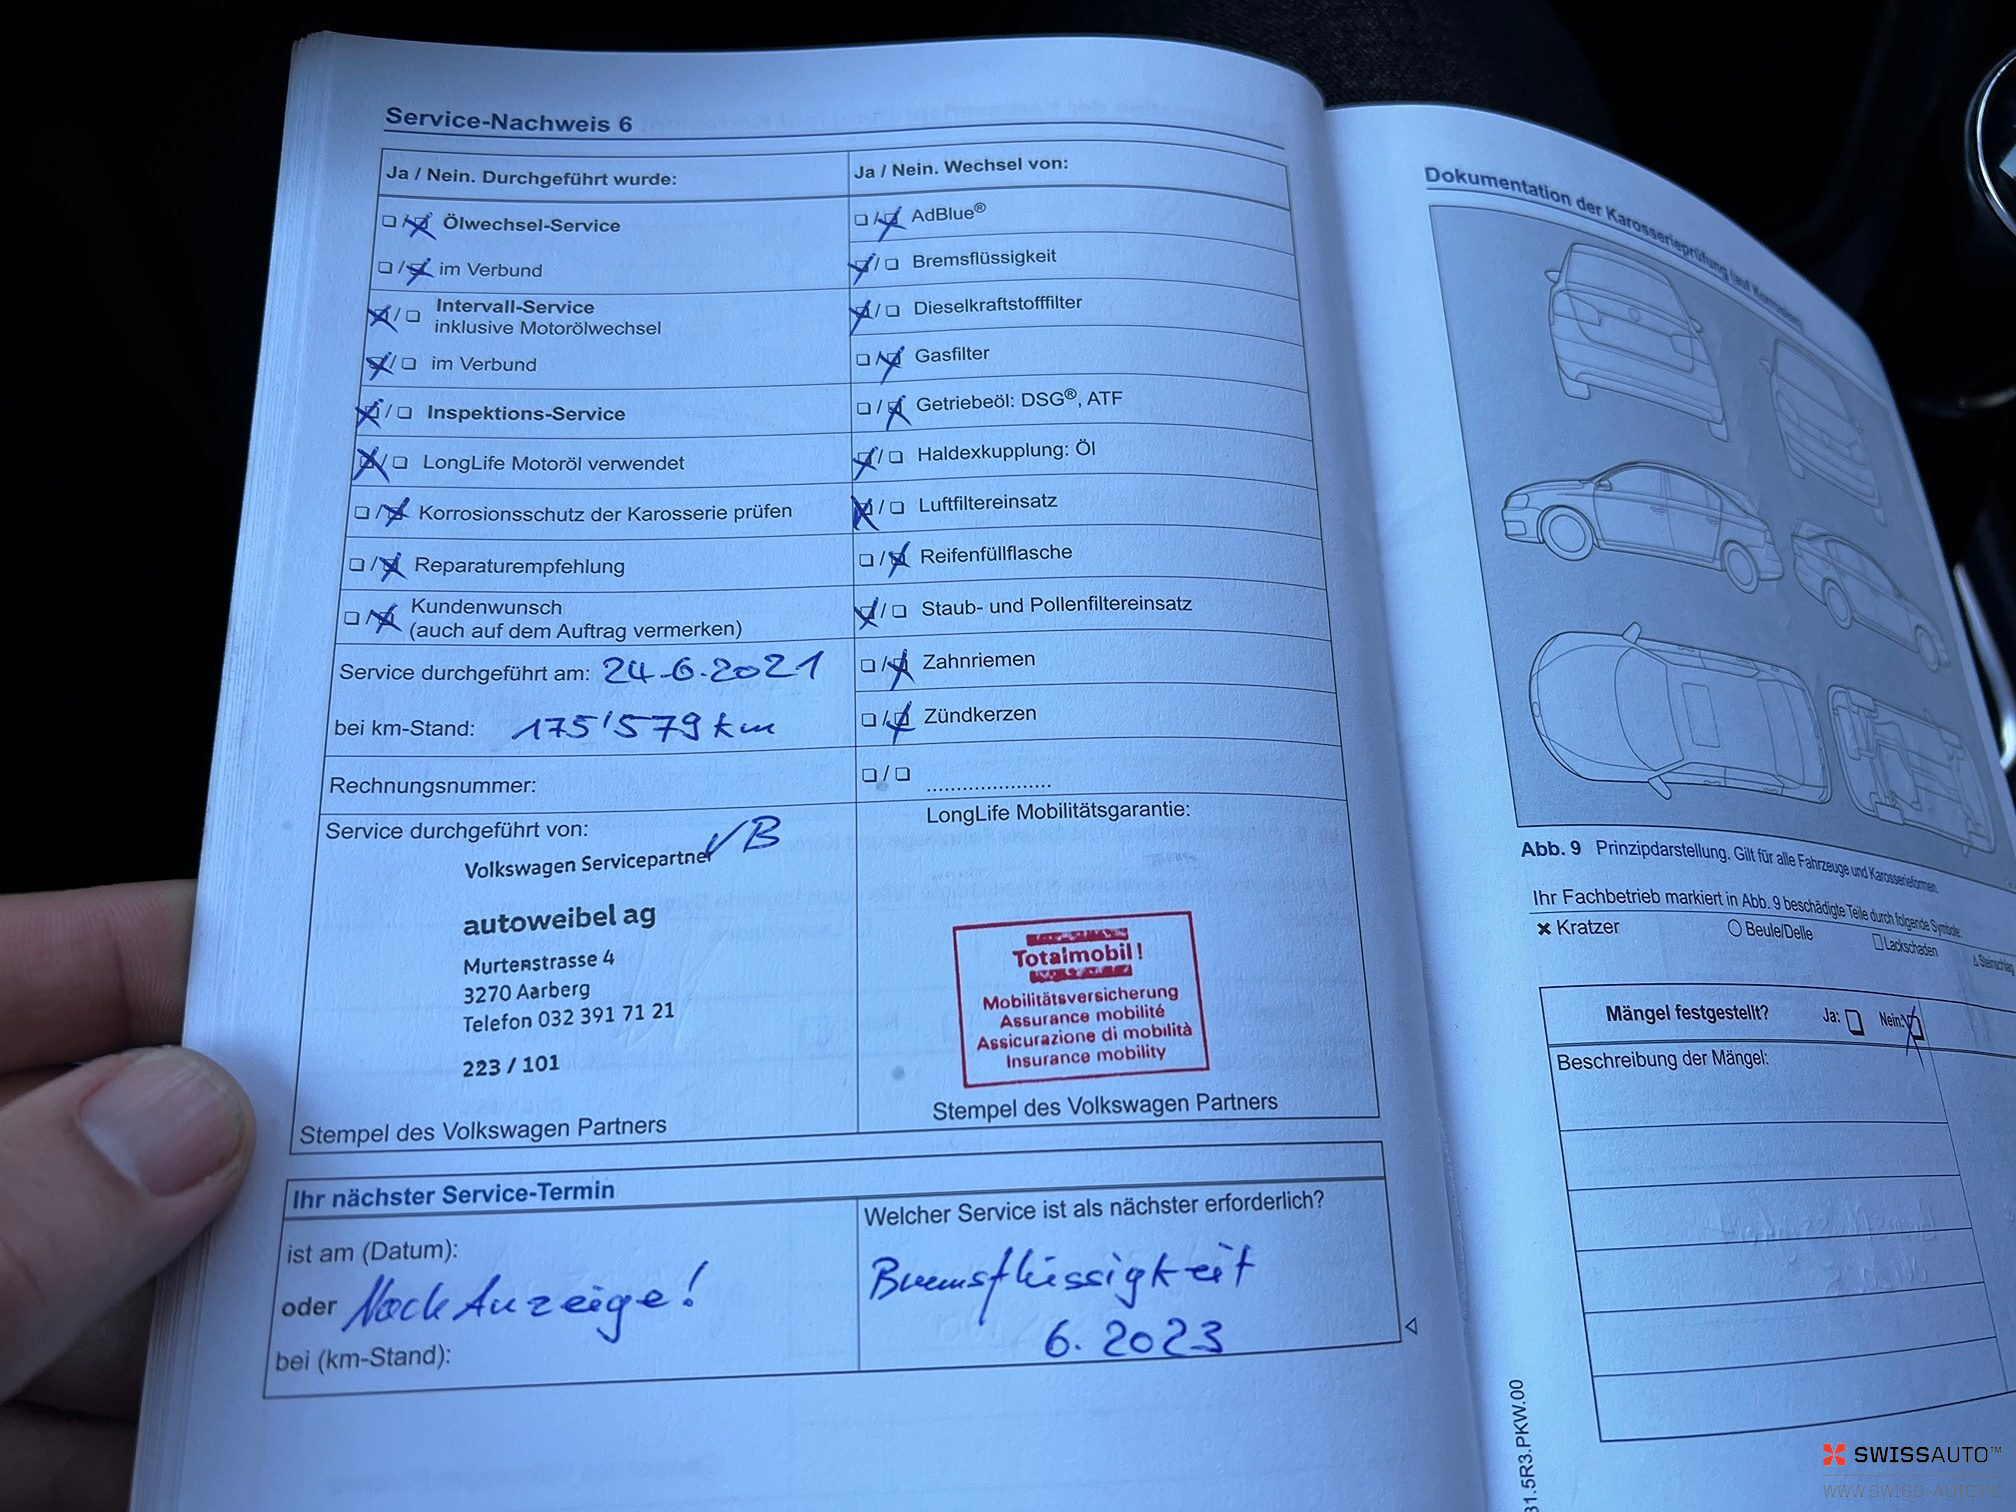 Service-Nachweis 6
Ja / Nein. Durchgeführt wurde:
Ölwechsel-Service
im Verbund
Intervall-Service
inklusive Motorölwechsel
im Verbund
Inspektions-Service
LongLife Motoröl verwendet
Korrosionsschutz der Karosserie prüfen
Reparaturempfehlung
Kundenwunsch
(auch auf dem Auftrag vermerken)
Service durchgeführt am: 24.6.2021
bei km-Stand: 175'579 km
Rechnungsnummer:
Service durchgeführt von:
Volkswagen Servicepartner
autoweibel ag
Murtenstrasse 4
3270 Aarberg
Telefon 032 391 71 21
223 / 101
Stempel des Volkswagen Partners
Ja / Nein. Wechsel von:
AdBlue®
Bremsflüssigkeit
Dieselkraftstofffilter
Gasfilter
Getriebeöl: DSG®, ATF
Haldexkupplung: Öl
Luftfiltereinsatz
Reifenfüllflasche
Staub- und Pollenfiltereinsatz
Zahnriemen
Zündkerzen
LongLife Mobilitätsgarantie:
Totalmobil!
Mobilitätsversicherung
Assurance mobilité
Assicurazione di mobilità
Insurance mobility
Stempel des Volkswagen Partners
Ihr nächster Service-Termin
ist am (Datum):
oder Nach Anzeige!
bei (km-Stand):
Welcher Service ist als nächster erforderlich?
Bremsflüssigkeit
6. 2023
Dokumentation der Karosserieprüfung (auf Korrosion)
Abb. 9 Prinzipdarstellung. Gilt für alle Fahrzeuge und Karosserieformen.
Ihr Fachbetrieb markiert in Abb. 9 beschädigte Teile durch folgende Symbole:
Kratzer
Beule/Delle
Lackschaden
Steinschlag
Mängel festgestellt? Ja: Nein:
Beschreibung der Mängel:
31.5R3.PKW.00
SWISSAUTO™